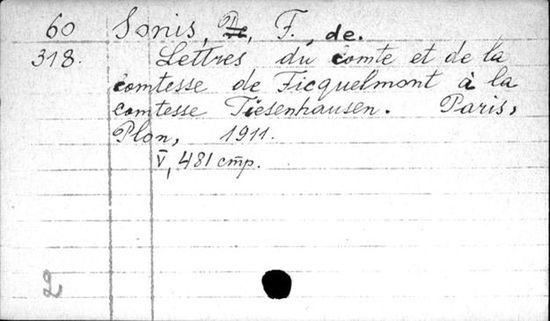 60 Sonis, De, F., de.
318. Lettres du comte et de la
comtesse de Ficquelmont à la
comtesse Tiesenhausen. Paris,
Plon, 1911.
V, 481 стр.
2